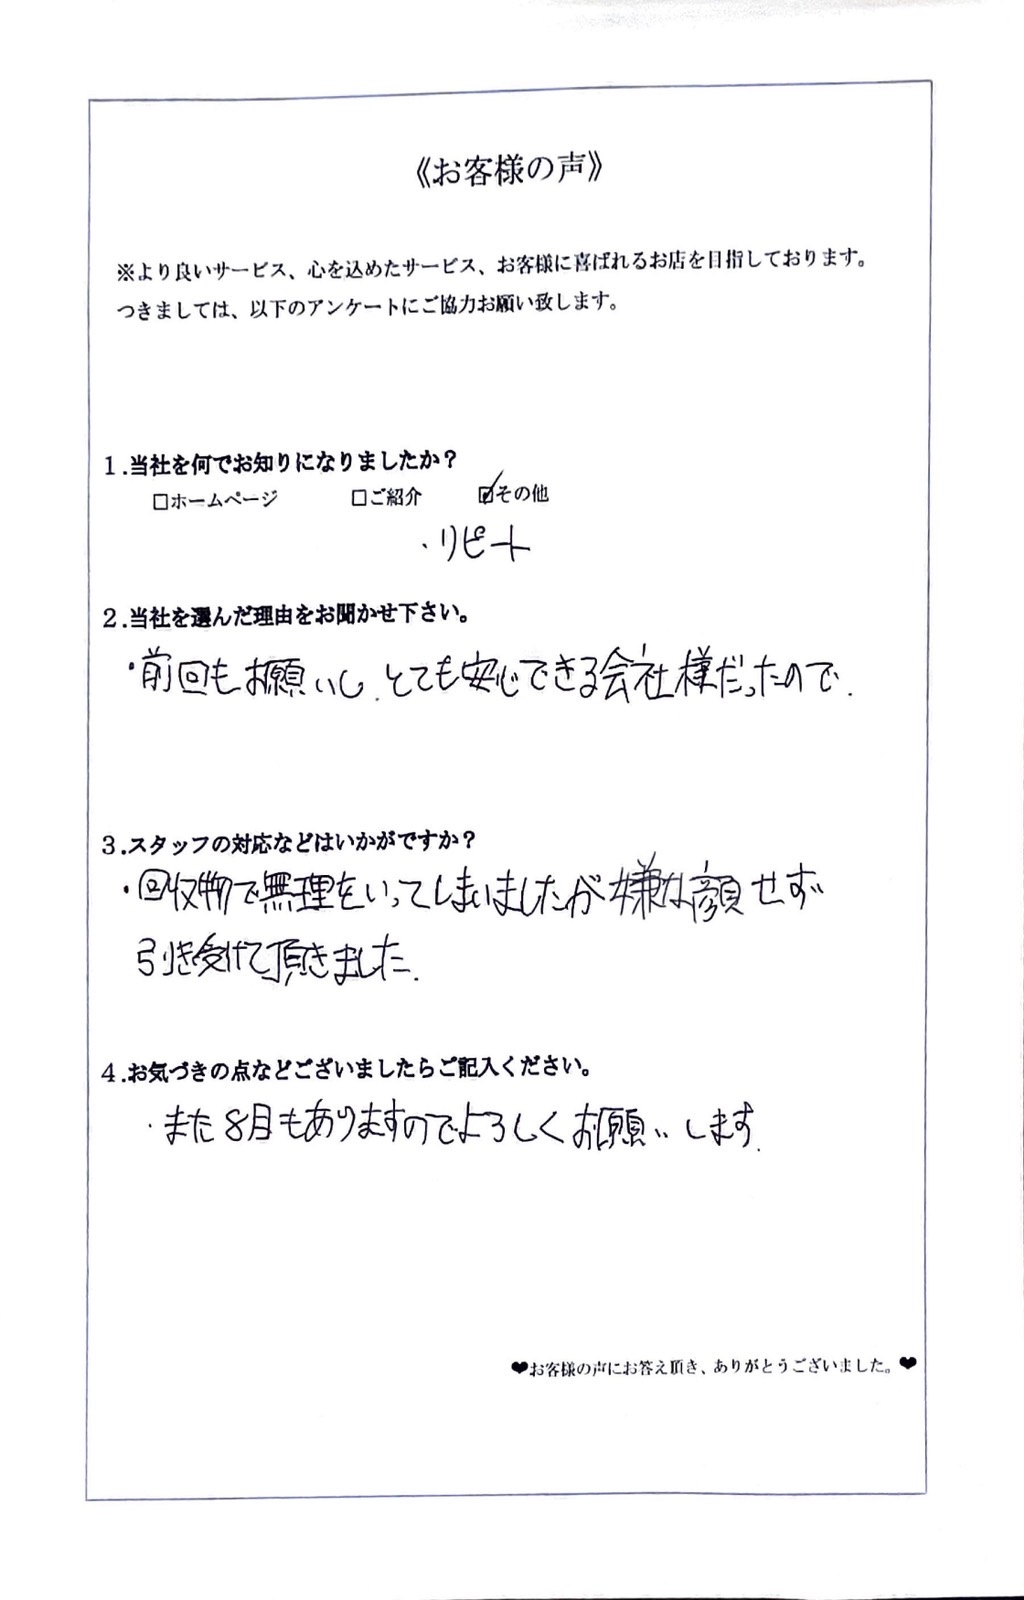 《お客様の声》
※より良いサービス、心を込めたサービス、お客様に喜ばれるお店を目指しております。
つきましては、以下のアンケートにご協力お願い致します。
1.当社を何でお知りになりましたか？
□ホームページ □ご紹介 ☑その他
・リピート
2.当社を選んだ理由をお聞かせ下さい。
・前回もお願いし、とても安心できる会社様だったので。
3.スタッフの対応などはいかがですか？
・回収物で無理をいってしまいましたが嫌な顔せず
引き受けて頂きました。
4.お気づきの点などございましたらご記入ください。
・また8月もありますのでよろしくお願いします。
❤お客様の声にお答え頂き、ありがとうございました。❤